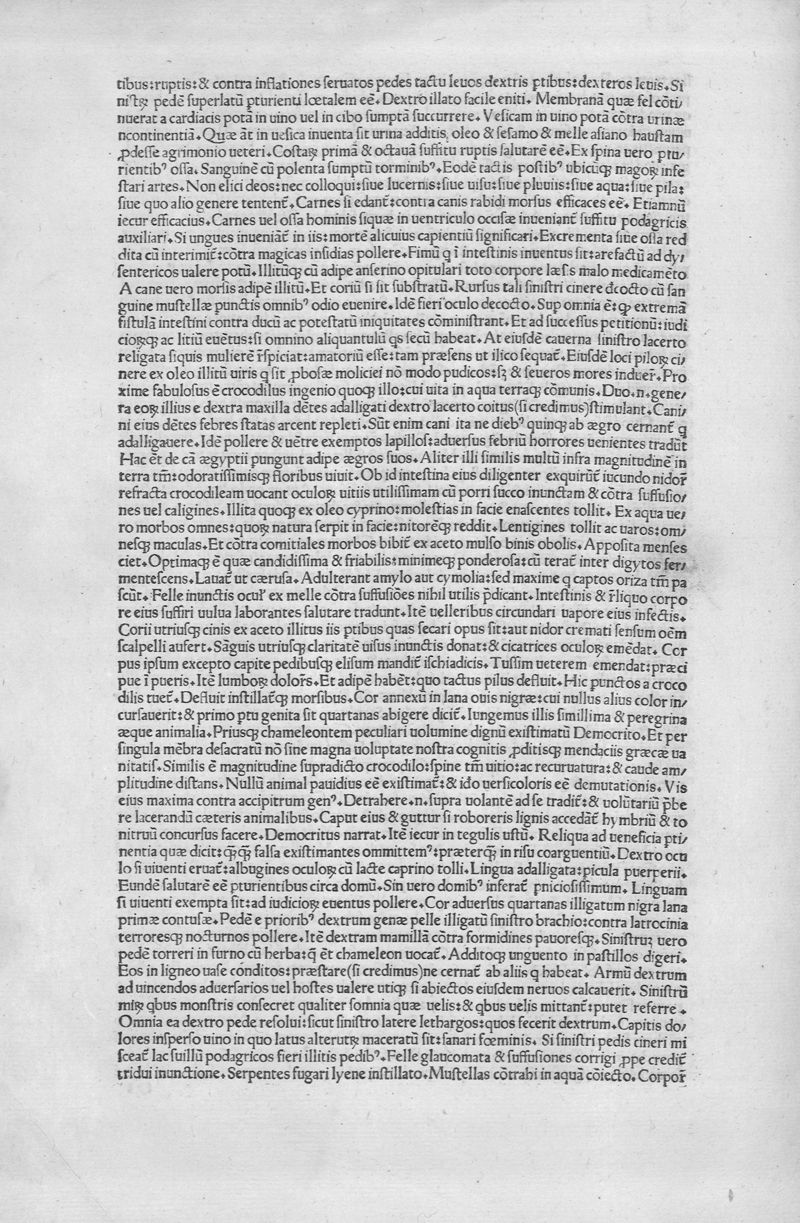 tibus:ruptis:& contra inflationes seruatos pedes tactu leuos dextris ꝑtibus:dexteros leuis. Si
nistꝝ pedē superlatū ꝑturienti lœtalem eē. Dextro illato facile eniti. Membranā quæ fel cōti/
nuerat a cardiacis potā in uino uel in cibo sumptā succurrere. Vesicam in uino potā cōtra urinæ
ncontinentiā. Quæ āt in uesica inuenta sit urina additis, oleo & sesamo & melle asiano haustam
ꝓdesse agrimonio ueteri. Costaꝝ primā & octauā suffitu ruptis salutarē eē. Ex spina uero ptu/
rientibꝰ ossa. Sanguinē cū polenta sumptū torminibꝰ. Eodē tactis postibꝰ ubicūqꝫ magoꝝ infe
stari artes. Non elici deos:nec colloqui:siue lucernis:siue uisu:siue pluuiis:siue aqua:siue pila:
siue quo alio genere tentent̃. Carnes si edant̃:contra canis rabidi morsus efficaces eē. Etiamnū
iecur efficacius. Carnes uel ossa hominis siquæ in uentriculo occisæ inueniant̃ suffitu podagricis
auxiliari. Si ungues inueniāt̃ in iis:mortē alicuius capientiū significari. Excrementa siue ossa red
dita cū interimit̃:cōtra magicas insidias pollere. Fimū q̄ ī intestinis inuentus sit:arefactū ad dy/
sentericos ualere potū. Illitūqꝫ cū adipe anserino opitulari toto corpore læsis malo medicamēto
A cane uero morsis adipē illitū. Et coriū si sit substratū. Rursus tali sinistri cinere dcocto cū san
guine mustellæ punctis omnibꝰ odio euenire. Idē fieri oculo decocto. Sup omnia ē:qꝫ extremā
fistulā intestini contra ducū ac potestatū iniquitates cōministrant. Et ad successus petitionū:iudi
cioꝝqꝫ ac litiū euētus:si omnino aliquantulū qs secū habeat. At eiusdē cauerna sinistro lacerto
religata siquis mulierē r̄spiciat:amatoriū esse:tam præsens ut ilico sequat̃. Eiusdē loci piloꝝ ci/
nere ex oleo illitū uiris q̄ sit ꝓbosæ moliciei nō modo pudicos:sꝫ & seueros mores induer̃. Pro
xime fabulosus ē crocodilus ingenio quoqꝫ illo:cui uita in aqua terraqꝫ cōmunis. Duo.n.gene/
ra eoꝝ illius e dextra maxilla dētes adalligati dextro lacerto coitus(si credimus)stimulant. Cani/
ni eius dētes febres statas arcent repleti. Sūt enim cani ita ne diebꝰ quinqꝫ ab ægro cernant̃ q̄
adalligauere. Idē pollere & uētre exemptos lapillos:aduersus febriū horrores uenientes tradūt
Hac ēt de cā ægyptii pungunt adipe ægros suos. Aliter illi similis multū infra magnitudinē in
terra tm̄:odoratissimisqꝫ floribus uiuit. Ob id intestina eius diligenter exquirūt̃ iucundo nidor̃
refracta crocodileam uocant oculoꝝ uitiis utilissimam cū porri succo inunctam & cōtra suffusio/
nes uel caligines. Illita quoqꝫ ex oleo cyprino:molestias in facie enascentes tollit. Ex aqua ue/
ro morbos omnes:quoꝝ natura serpit in facie:nitorēqꝫ reddit. Lentigines tollit ac uaros:om/
nesqꝫ maculas. Et cōtra comitiales morbos bibit̃ ex aceto mulso binis obolis. Apposita menses
ciet. Optimaqꝫ ē quæ candidissima & friabilis:minimeqꝫ ponderosa:cū terat̃ inter digytos fer/
mentescens. Lauat̃ ut cærusa. Adulterant amylo aut cymolia:sed maxime q̄ captos oriza tm̄ pa
scūt. Felle inunctis oculꝭ ex melle cōtra suffusiōes nihil utilis p̄dicant. Intestinis & r̄liquo corpo
re eius suffiri uulua laborantes salutare tradunt. Itē uelleribus circundari uapore eius infectis.
Corii utriusqꝫ cinis ex aceto illitus iis ꝑtibus quas secari opus sit:aut nidor cremati sensum oēm
scalpelli aufert. Sāguis utriusqꝫ claritatē uisus inunctis donat:& cicatrices oculoꝝ emēdat. Cor
pus ipsum excepto capite pedibusqꝫ elisum mandit̃ ischiadicis. Tussim ueterem emendat:præci
pue ī pueris. Itē lumboꝝ dolor̃s. Et adipē habēt:quo tactus pilus defluit. Hic punctos a croco
dilis tuet̃. Defluit instillat̃qꝫ morsibus. Cor annexū in lana ouis nigræ:cui nullus alius color in/
cursauerit:& primo ptu genita sit quartanas abigere dicit̃. Iungemus illis simillima & peregrina
æque animalia. Priusqꝫ chameleontem peculiari uolumine dignū existimatū Democrito. Et per
singula mēbra desacratū nō sine magna uoluptate nostra cognitis ꝓditisqꝫ mendaciis græcæ ua
nitatis. Similis ē magnitudine supradicto crocodilo:spine tm̄ uitio:ac recuruatura:& caude am/
plitudine distans. Nullū animal pauidius eē existimat̃:& ido uersicoloris eē demutationis. Vis
eius maxima contra accipitrum genꝰ. Detrahere.n.supra uolantē ad se tradit̃:& uolūtariū p̄be
re lacerandū cæteris animalibus. Caput eius & guttur si roboreis lignis accēdat̃ hymbriū & to
nitruū concursus facere. Democritus narrat. Itē iecur in tegulis ustū. Reliqua ad ueneficia pti/
nentia quæ dicit:qꝫqꝫ falsa existimantes ommittemꝰ:præterqꝫ in risu coarguentiū. Dextro ocu
lo si uiuenti eruat̃:albugines oculoꝝ cū lacte caprino tolli. Lingua adalligata:picula puerperii.
Eundē salutarē eē ꝑturientibus circa domū. Sin uero domibꝰ inferat̃ pniciosissimum. Linguam
si uiuenti exempta sit:ad iudicioꝝ euentus pollere. Cor aduersus quartanas illigatum nigra lana
primæ contusæ. Pedē e prioribꝰ dextrum genæ pelle illigatū sinistro brachio:contra latrocinia
terroresqꝫ nocturnos pollere. Itē dextram mamillā cōtra formidines pauoresqꝫ. Sinistrū uero
pedē torreri in furno cū herba:q̄ ēt chameleon uocat̃. Additoqꝫ unguento in pastillos digeri.
Eos in ligneo uase conditos:præstare(si credimus)ne cernat̃ ab aliis q̄ habeat. Armū dextrum
ad uincendos aduersarios uel hostes ualere utiqꝫ si abiectos eiusdem neruos calcauerit. Sinistrū
mīꝝ qbus monstris consecret qualiter somnia quæ uelis:& qbus uelis mittant̃:putet referre.
Omnia ea dextro pede resolui:sicut sinistro latere lethargos:quos fecerit dextrum. Capitis do/
lores insperso uino in quo latus alterutꝝ maceratū sit:sanari fœminis. Si sinistri pedis cineri mi
sceat̃ lac suillū podagricos fieri illitis pedibꝰ. Felle glaucomata & suffusiones corrigi ꝓpe credit̃
tridui inunctione. Serpentes fugari lyene instillato. Mustellas cōtrahi in aquā cōiecto. Corpor̃